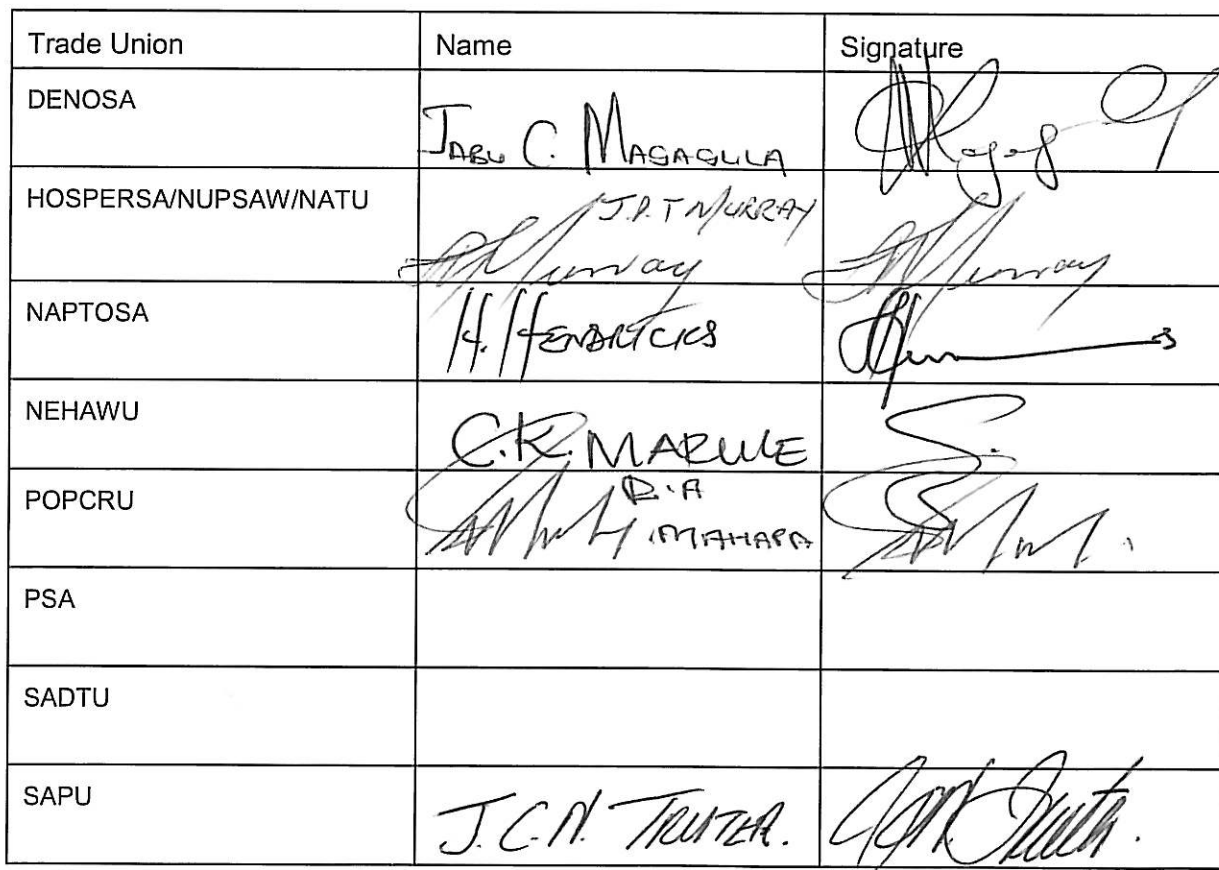 Trade Union Name Signature
DENOSA JABU C. MAGAGULA
HOSPERSA/NUPSAW/NATU J.P.T MURRAY
Murray Murray
NAPTOSA H. HENDRICKS
NEHAWU C.K. MARULE
POPCRU R.A
MAHAPA
PSA
SADTU
SAPU J.C.N. TRUTER.